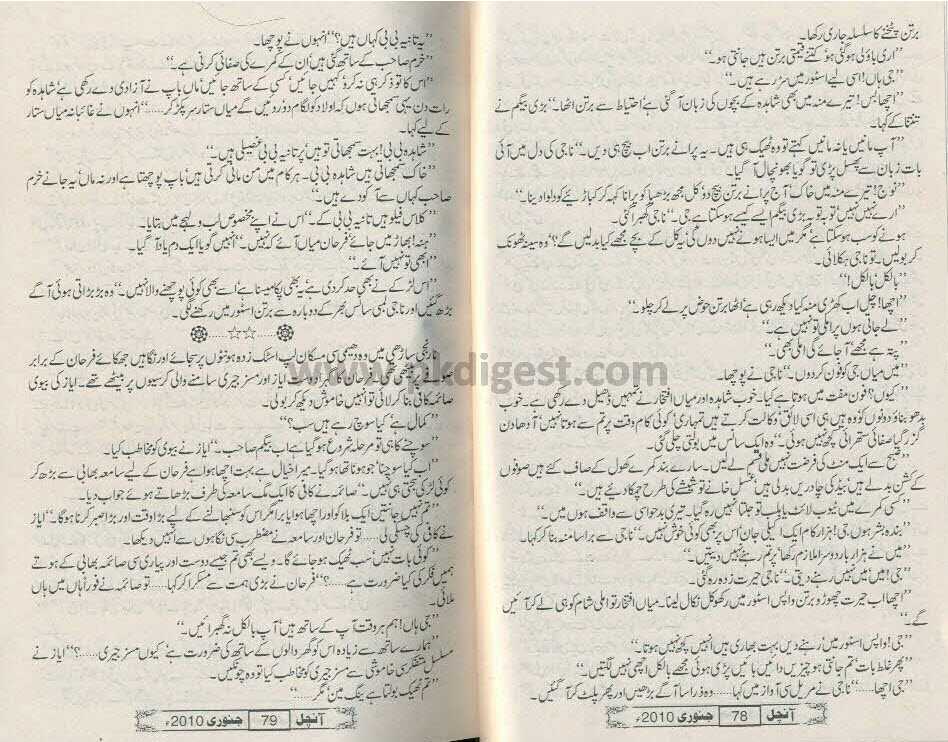 برتن پٹخنے کا سلسلہ جاری رکھا۔
”اری باؤلی ہو گئی ہو‘ کتنے قیمتی برتن ہیں جانتی ہو۔“
”جی ہاں! اسی لیے اسٹور میں سڑ رہے ہیں۔“
”اچھا بس! تیرے منہ میں بھی شاہدہ کے بچوں کی زبان آ گئی ہے‘ احتیاط سے برتن اٹھا۔“ بڑی بیگم نے
تنتنا کے کہا۔
”آپ مانیں یا نہ مانیں کہتے تو وہ ٹھیک ہی ہیں۔ یہ پرانے برتن اب بیچ ہی دیں۔“ ناجی کی دل میں آئی
بات زبان سے پھسل پڑی تو گویا بھونچال آ گیا۔
”نوج! تیرے منہ میں خاک‘ آج پرانے برتن بیچ دو‘ کل مجھ بڑھیا کو پرانا کہہ کر کباڑیئے کو دلوا دینا۔“
”ارے نہیں نہیں‘ توبہ توبہ بڑی بیگم ایسے کیسے ہو سکتا ہے جی۔“ ناجی گھبرائی۔
ہونے کو سب ہو سکتا ہے‘ مگر میں ایسا ہونے نہیں دوں گی‘ یہ کل کے بچے مجھے کیا بدلیں گے؟‘ وہ سینہ ٹھونک
کر بولیں۔ تو ناجی ہکلائی۔
”بالکل‘ بالکل!“
”اچھا! چل اب کھڑی منہ کیا دیکھ رہی ہے‘ اٹھا برتن حوض پر لے کر چلو۔“
”لے جاتی ہوں پر املی تو نہیں ہے۔“
”پتہ ہے مجھے‘ آ جائے گی املی بھی۔“
”میں میاں جی کو فون کر دوں۔“ ناجی نے پوچھا۔
”کیوں؟ فون مفت میں ہوتا ہے کیا۔ خوب شاہدہ اور میاں افتخار نے تمہیں ڈھیل دے رکھی ہے۔ خوب
بدھو بناؤ دونوں کو وہ ہیں ہی اسی لائق‘ وکالت کرتے ہیں تمہاری‘ کوئی کام وقت پر تم سے ہوتا نہیں‘ آدھا دن
گزر گیا صفائی ستھرائی کچھ نہیں ہوئی۔“ وہ ایک سانس میں بولتی چلی گئی۔
”صبح سے ایک منٹ کی فرصت نہیں ملی قسم لے لیں۔ سارے بند کمرے کھول کے صاف کئے ہیں صوفوں
کے کشن بدلے ہیں‘ بیڈ کی چادریں بدلی ہیں‘ غسل خانے تو شیشے کی طرح چمکا دیئے ہیں۔“
”کسی کمرے میں ٹیوب لائٹ یا بلب تو جلتا نہیں رہ گیا۔ تیری بدحواسی سے واقف ہوں میں۔“
”بندہ بشر ہوں جی! ہزار کام ایک اکیلی جان‘ اس پر بھی کوئی خوش نہیں۔“ ناجی سے برا سا منہ بنا کر کہا۔
”میں نے ہزار بار دوسرا ملازم رکھا‘ پر تم رہنے نہیں دیتیں۔“
”جی! میں‘ میں نہیں رہنے دیتی۔“ ناجی حیرت زدہ رہ گئی۔
”اچھا اب حیرت چھوڑو برتن واپس اسٹور میں رکھو کل نکال لینا۔ میاں افتخار تو املی شام کو ہی لے کر آئیں
گے۔“
”جی! واپس اسٹور میں رہنے دیں بہت بھاری ہیں انہیں کچھ نہیں ہوتا۔“
”پھر غلط بات‘ تم جانتی ہو چیزیں دائیں بائیں پڑی ہوئی مجھے بالکل اچھی نہیں لگتیں۔“
”جی اچھا۔“ ناجی نے مریل سی آواز میں کہا...... وہ ذرا سا آگے بڑھیں اور پھر پلٹ کر آ گئیں۔
آنچل 78 جنوری 2010ء
”یہ تانیہ بی بی کہاں ہیں؟“ انہوں نے پوچھا۔
”خرم صاحب کے ساتھ گئی ہیں‘ ان کے کمرے کی صفائی کرنی ہے۔“
”اس کا تو ذکر ہی نہ کرو‘ کہیں جائیں‘ کسی کے ساتھ جائیں‘ ماں باپ نے آزادی دے رکھی ہے‘ شاہدہ کو
رات دن یہی سمجھاتی ہوں کہ اولاد کو لگام دو‘ رو دیں گے میاں ستار سر پکڑ کر......“ انہوں نے غائبانہ میاں ستار
کے لیے کہا۔
”شاہدہ بی بی! بہت سمجھاتی تو ہیں‘ پر تانیہ بی بی غصیلی ہیں۔“
”خاک سمجھاتی ہیں شاہدہ بی بی۔ ہر کام میں من مانی کرتی ہیں‘ باپ پوچھتا ہے اور نہ ماں‘ یہ جانے خرم
صاحب کہاں سے آ کودے ہیں۔“
”کلاس فیلو ہیں تانیہ بی بی کے۔“ اس نے اپنے مخصوص لب و لہجے میں بتایا۔
”ہنہ! بھاڑ میں جائے‘ فرحان میاں آئے کہ نہیں۔“ انہیں گویا ایک دم یاد آ گیا۔
”ابھی تو نہیں آئے۔“
”اس لڑکے نے بھی حد کر دی ہے‘ یہ بھی پکا میسنا ہے‘ اسے بھی کوئی پوچھنے والا نہیں۔“ وہ بڑبڑاتی ہوئی آگے
بڑھ گئیں اور ناجی لمبی سانس بھر کے دوبارہ سے برتن اسٹور میں رکھنے لگی۔
☆☆
نارنجی ساڑھی میں وہ دھیمی سی مسکان لپ اسٹک زدہ ہونٹوں پر سجائے اور نگاہیں جھکائے فرحان کے برابر
صوفے پر بیٹھی تھی۔ فرحان کا گہرا دوست ایاز اور مسز جیری سامنے والی کرسیوں پر بیٹھے تھے۔ ایاز کی بیوی
صائمہ کافی بنا کر لائی تو انہیں خاموش دیکھ کر بولی۔
”کمال ہے‘ کیا سوچ رہے ہیں سب؟“
”سوچنے کا ہی تو مرحلہ شروع ہو گیا ہے اب بیگم صاحب۔“ ایاز نے بیوی کو مخاطب کیا۔
”اب کیا سوچنا‘ جو ہونا تھا ہو گیا۔ میرا خیال ہے بہت اچھا ہوا ہے فرحان کے لیے سامعہ بھابی سے بڑھ کر
کوئی لڑکی جچتی ہی نہیں۔“ صائمہ نے کافی کا ایک مگ سامعہ کی طرف بڑھاتے ہوئے جواب دیا۔
”تم نہیں جانتیں ایک بلا کو اور اچھا ہوا یا برا مگر اس کو سنبھالنے کے لیے بڑا وقت اور بڑا صبر کرنا ہو گا۔“ ایاز
نے کافی کی چسکی لی...... تو فرحان اور سامعہ نے مضطرب سی نگاہوں سے انہیں دیکھا۔
”کوئی بات نہیں‘ سب ٹھیک ہو جائے گا۔ ویسے بھی تم جیسے دوست اور پیاری سی صائمہ بھابی کے ہوتے
ہمیں فکر کی کیا ضرورت ہے......؟“ فرحان نے بڑی ہمت سے مسکرا کر کہا...... تو صائمہ نے فوراً ہاں میں ہاں
ملائی۔
”جی ہاں! ہم ہر وقت آپ کے ساتھ ہیں آپ بالکل نہ گھبرائیں۔“
”ہمارے ساتھ سے زیادہ اس کو گھر والوں کے ساتھ کی ضرورت ہے‘ کیوں مسز جیری......؟“ ایاز نے
مسلسل متفکر سی خاموشی سے مسز جیری کو مخاطب کیا تو وہ چونکیں۔
”تم ٹھیک بولتا ہے ینگ مین‘ مگر......“
آنچل 79 جنوری 2010ء
www.pkdigest.com